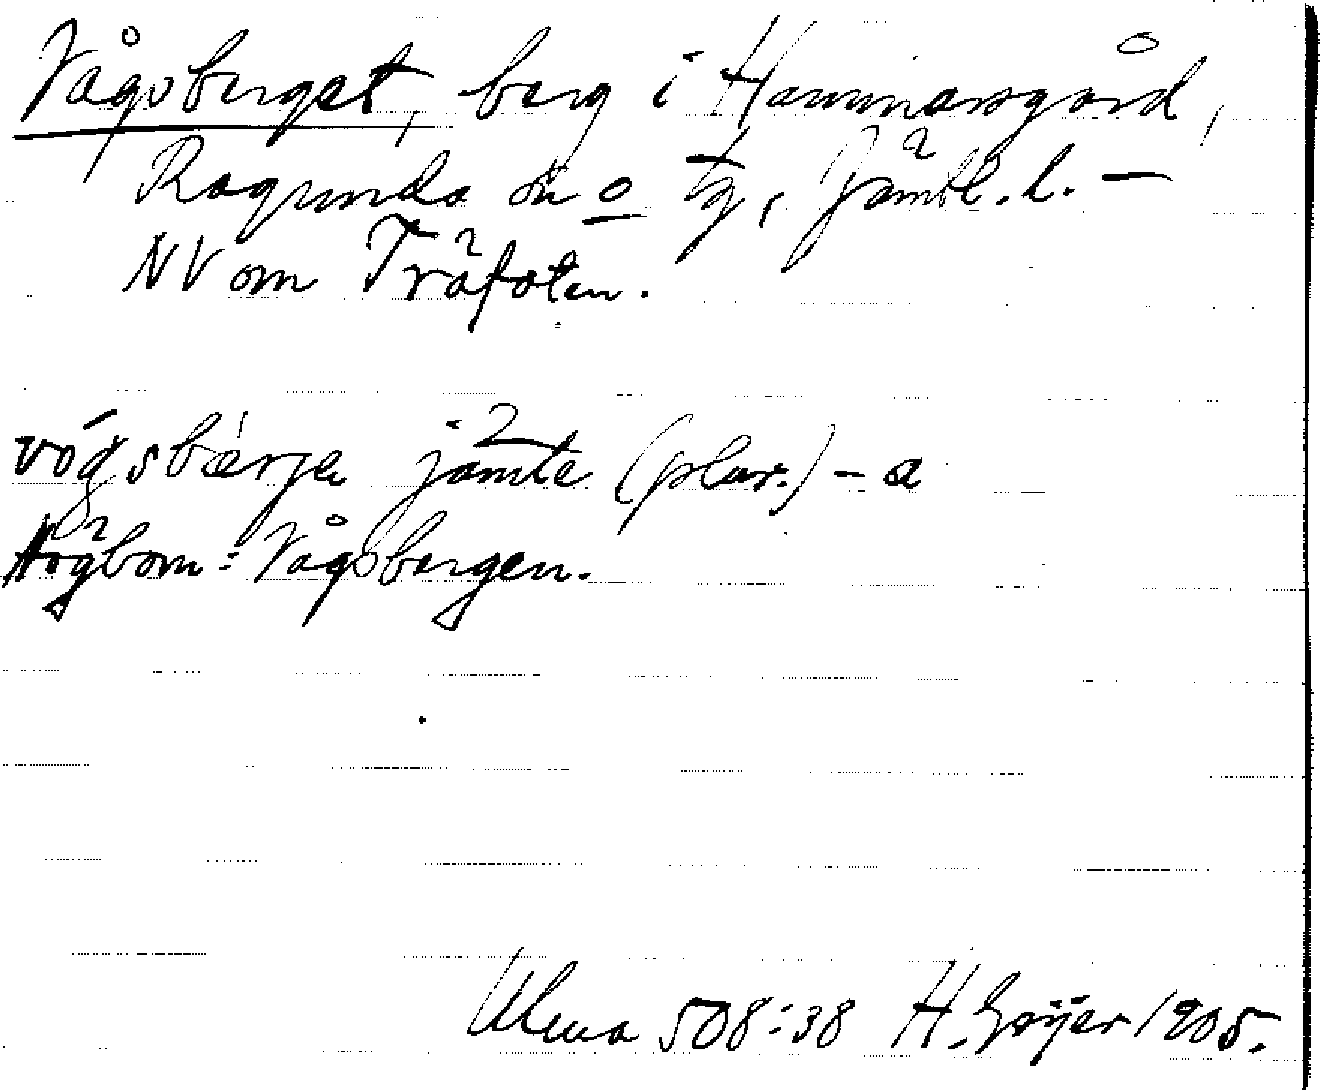 Vågsberget, berg i Hammarsgård,
Ragunda sn o tg, Jämtl. l. –
NV om Träfoten.
vógsbærjɐ jämte (plur.) – a
Högbom: Vågsbergen.
Ulma 508:38 H. Geijer 1905.